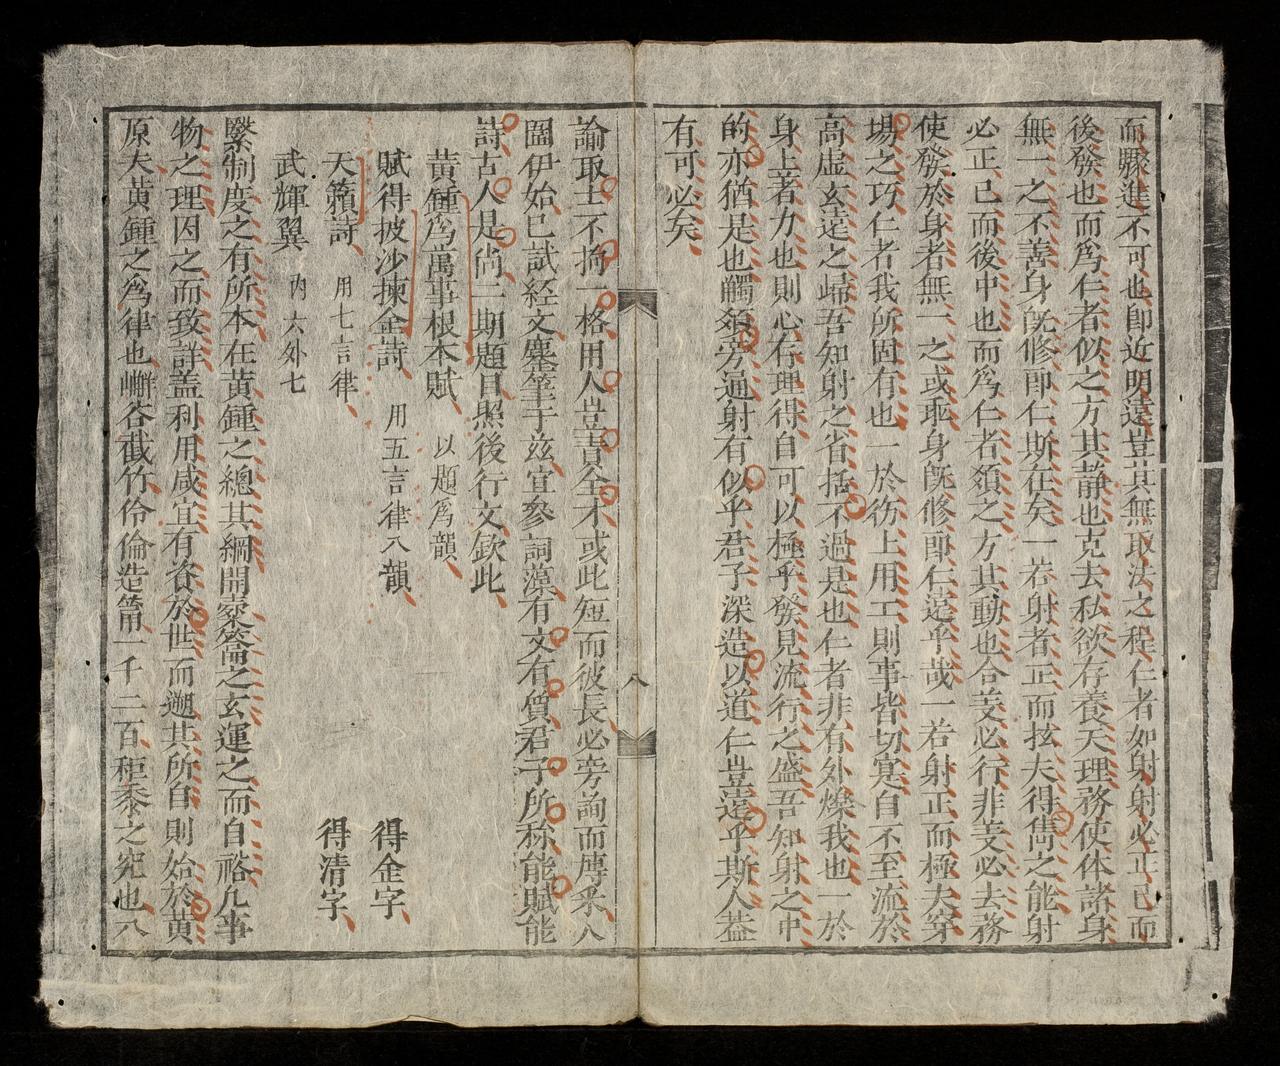 而驟進不可也卽近明遠豈其無取法之程仁者如射射必正已而
後發也而爲仁者似之方其靜也克去私欲存養天理務使体諸身
無一之不善身旣修卽仁斯在矣一若射者正而抜夫得雋之能射
必正已而後中也而爲仁者須之方其動也合妾必行非妾必去務
使發於身者無一之或乖身旣修卽仁遠乎哉一若射正而極夫穿
場之巧仁者我所固有也一於彷上用工則事皆切寔自不至流於
高虛玄遠之歸吾知射之省括不過是也仁者非有外爍我也一於
身上著力也則心存理得自可以極乎發見流行之盛吾知射之中
的亦猶是也觸須旁通射有似乎君子深造以道仁豈遠乎斯人葢
有可必矣
八
諭取士不擒一格用人豈責全才或此短而彼長必旁詢而博采八
圖伊始已試経文塵筆于兹宜參詞藻有文有質君子所称能賦能
詩古人是尙二期題目照後行文欽此
黃鍾爲萬事根本賦 以題爲韻
賦得披沙揀金詩 用五言律八韻 得金字
天籟詩 用七言律 得清字
武輝翼 內六外七
繄制度之有所本在黃鍾之總其綱開槖籥之玄運之而自裕凢事
物之理因之而致詳盖利用咸宜有咨於世而遡其所自則始於黃
原夫黃鍾之爲律也嶰谷截竹伶倫造筩一千二百秬黍之究也八